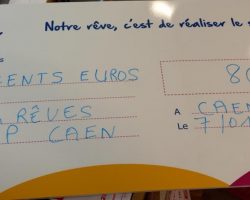 Notre rêve, c'est de réaliser le
CENTS EUROS
80
RÊVES
A CAEN
P CAEN
Le 7/01